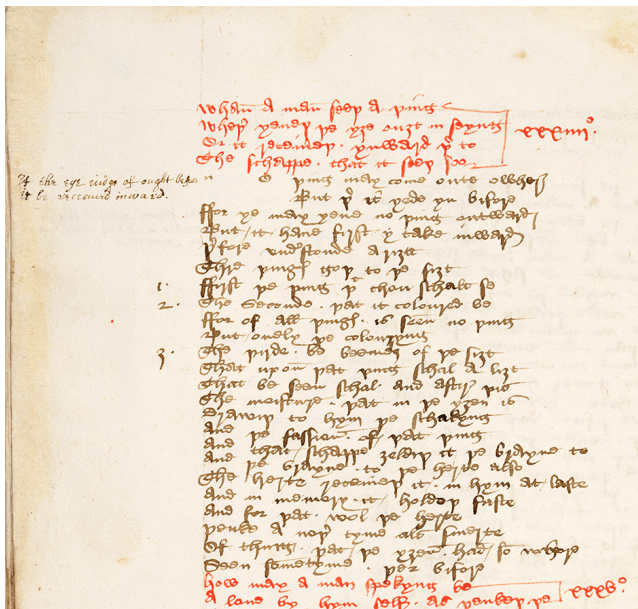 Whan a man seeþ a þing
Wheþer ȝeueþ þe yȝe ouȝt in seyng xxxiiiiº.
Or it receiueþ ynward þer to
The schappe that it seeþ soo
If the eye iudge of ought before
it be receaued inward.
No þing may come oute owher
But þer it ȝode yn bifore
ffor ye may ȝeue no þing outward
But it haue first y take inward
þerfore vnderstonde ariȝt
Thre þingis goþ to þe siȝt
1. ffirst þe þing þat thou schalt se
2. The Seconde þat it coloured be
ffor of all þingis is seen no þing
But oonly þe colouryng
3. The þirde be beemes of þe siȝt
That upon þat þing schal a liȝt
That be seen schal and aftir þis
The moisture þat in þe yȝen is
Drawiþ to hym þe schakyng
and þe fassioun of þat þing
and that schappe ȝeldiþ it þe brayne to
and þe brayne to þe herte also
The herte receiueþ it in hym at laste
and in memory it holdeþ faste
and for þat wol þe herte
þenke anoþer tyme als smerte
Of thing þat þe yȝen had so where
Seen sometyme þer bifore
how may a man spekyng be xxxvº.
A lone by hym self as þenkeþ þe